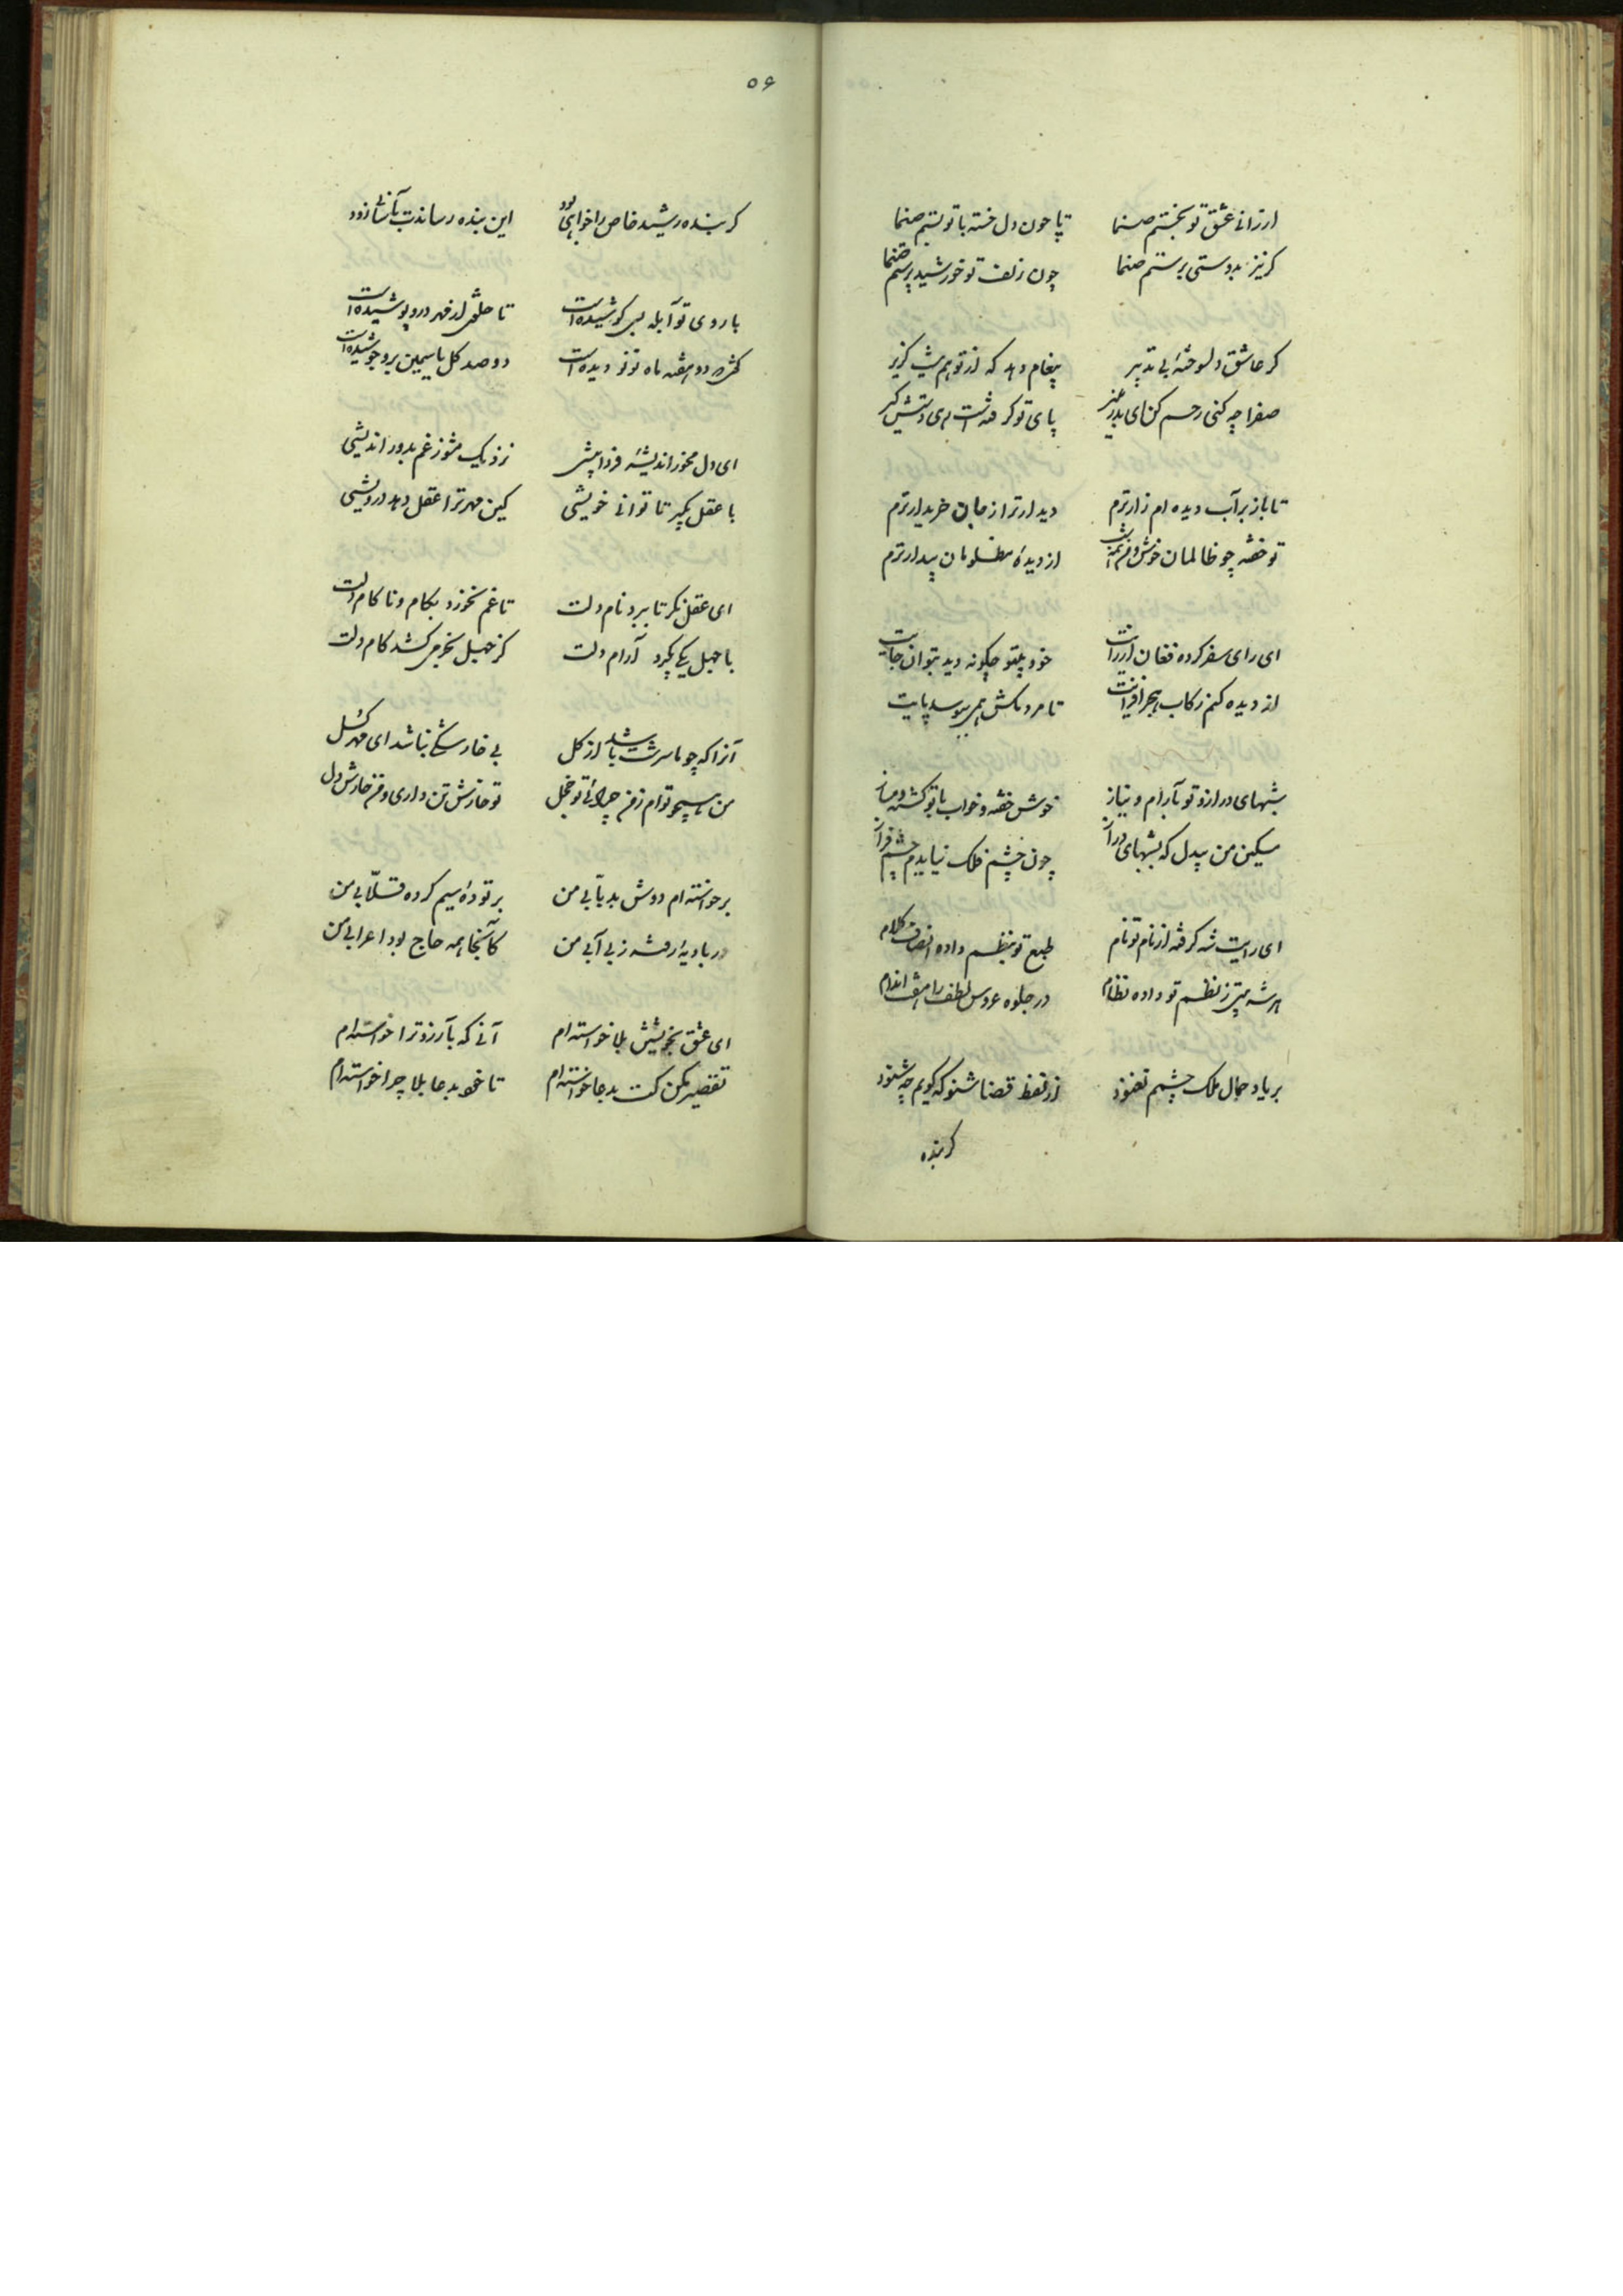 ارزانی عشق تو بختم صنما تا چون دل خسته با تو بستم صنما
گر نیز بدوستی پرستم صنما چون زلف تو خورشید پرستم صنما
گر عاشق دلسوخته بی تدبیر پیغام دهد که از تو هم نیست گزیر
صفرا چه کنی رحم کن ای بدر منیر پای تو گرفته است هی دستش گیر
تا باز بر آب دیده ام زارترم دیدار ترا ز جان خریدارترم
تو خفته چو ظالمان خوش و از دیده مظلومان بیدارترم
ای رای سفر کرده فغان از رایت خود بیتو چگونه دید بتوان جایت
از دیده کنم رکاب تا مردمکش همی ببوسد پایت
شبهای دراز و تو بآرام و بناز خوش خفته و خواب با تو گشته دمساز
مسکین من بیدل که بشبهای دراز چون چشم فلک نیایدم چشم فراز
ای رایت شه گرفته از نام تو نام طبع تو بنظم داده انصاف کلام
هر شه ز نظم تو داده نظام در جلوه عروس لطف را هفت اندام
بر یاد جمال ملک چشم نغنود از لفظ قضا شنو که گویم چه شنود
گر بنده
۵۶
گر بنده رشید خاص را خواهی بود این بنده رساندت بآسانی زود
با روی تو آبله بسی کوشیده است تا خلق از مهر درو پوشیده است
کس بر دو هفته ماه نو نو دیده است دو صد گل یاسمین برو جوشیده است
ای دل مخور اندیشه فردا بیشی نزدیک مشو ز غم بدور اندیشی
با عقل مگیر تا توانی خویشی کین مهر ترا عقل دهد درویشی
ای عقل نگر تا نبرد نام دلت تا غم نخورد بکام و ناکام دلت
با جهل یکی بگیرد آرام دلت کز جهل بخرمی کشد کام دلت
آنرا که چو ما سرشت باشد از گل بی خارشکی نباشد ای مهر گسل
من همچو توام ز من چرائی تو خجل تو خارش تن داری و من خارش دل
برخواسته ام دوش بد بتابی من بر توده سیم کرده قلابی من
در بادیه رفته ز بی آبی من کآنجا همه حاج بود اعرابی من
ای عشق بخویشتن بلا خواسته ام آنی که بآرزو ترا خواسته ام
تقصیر مکن کت بدعا خواسته ام تا خود بدعا بلا چرا خواسته ام